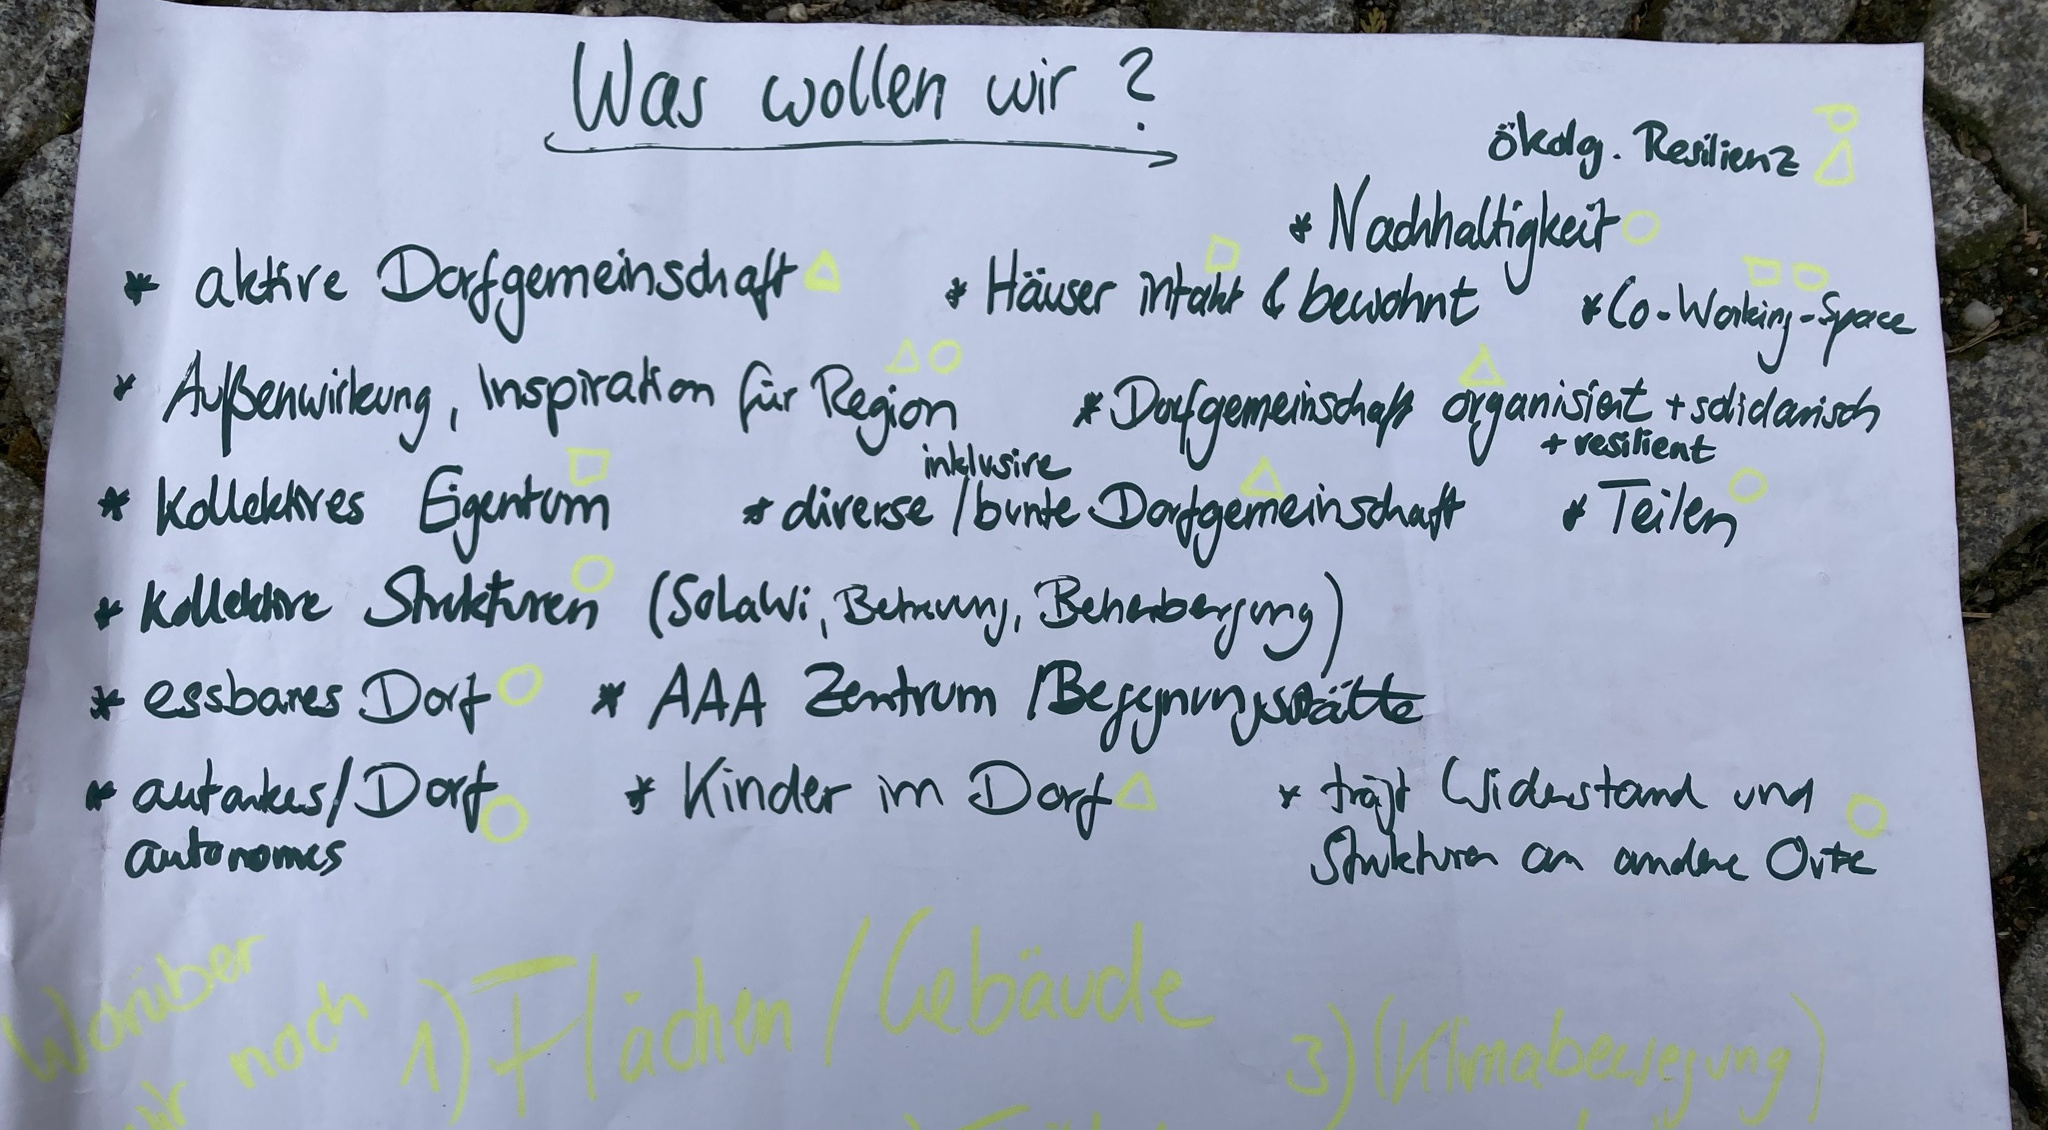 Was wollen wir?
ökolg. Resilienz
* Nachhaltigkeit
* aktive Dorfgemeinschaft
* Häuser intakt & bewohnt
* Co-Working-Space
* Außenwirkung, Inspiration für Region
* Dorfgemeinschaft organisiert + solidarisch
+ resilient
inklusive
* kollektives Eigentum
* diverse/bunte Dorfgemeinschaft
* Teilen
* kollektive Strukturen (SoLaWi, Betreuung, Beherbergung)
* essbares Dorf
* AAA Zentrum / Begegnungsstätte
* autarkes/Dorf
autonomes
* Kinder im Dorf
* trägt Widerstand und
Strukturen an andere Orte
Worüber
wir noch
1) Flächen / Gebäude
3) (Klimabewegung)